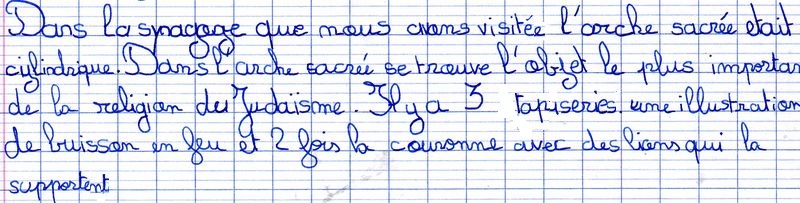 Dans la synagoge que nous avons visitée l'arche sacrée etait
cylindrique. Dans l'arche sacrée se trouve l'objet le plus importan
de la religion du Judaïsme. Il y a 3 tapiseries. une illustration
de buisson en feu et 2 fois la couronne avec des lions qui la
supportent